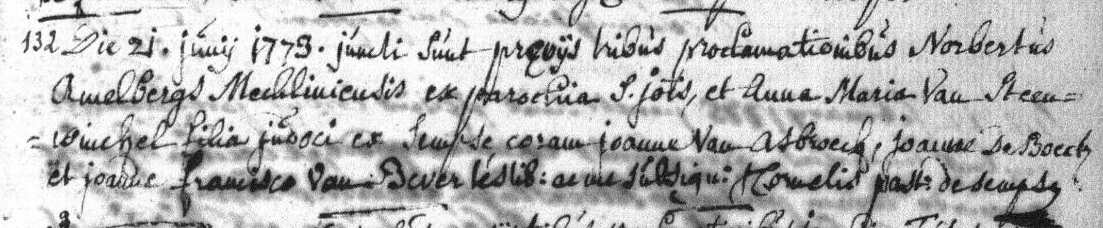 132 Die 21. junij 1773. juncti sunt prævijs tribus proclamationibus Norbertus
Amelbergs Mechliniensis ex parochia S. jõis, et Anna Maria Van Steen=
=winchel filia judoci ex Sempse coram joanne Van Asbroeck, joanne De Boeck
et joanne francisco Van Bever testib: ac me subsign: Cornelis past: de sempse